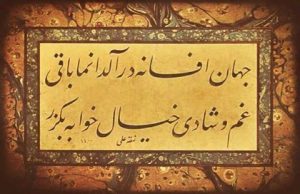 جهان افسانه در آلدانما باقی
غم و شادی خیال خوابه بکزر